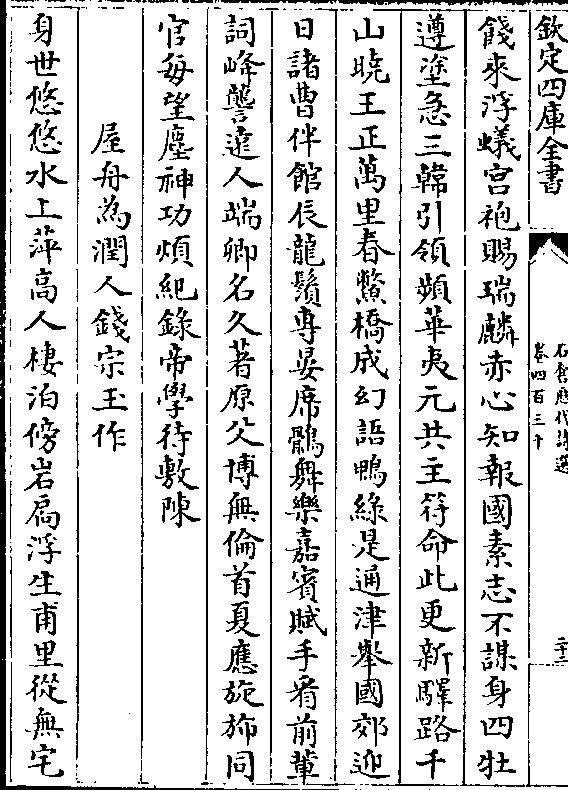 欽定四庫全書
石倉歷代詩選
卷四百三十
二十二
餞來浮蟻宫袍賜瑞麟赤心知報國素志不謀身四牡
遵塗急三韓引領頻華夷元共主符命此更新驛路千
山曉王正萬里春鰲橋成幻語鴨綠是通津舉國郊迎
日諸曹伴館辰龍鬚專宴席鶻舞樂嘉賓賦手看前輩
詞峰讋逺人端卿名久著原父博無倫首夏應旋斾同
官每望塵神功煩紀錄帝學待敷陳
屋舟為潤人錢宗玉作
身世悠悠水上萍高人棲泊傍岩扃浮生甫里從無宅